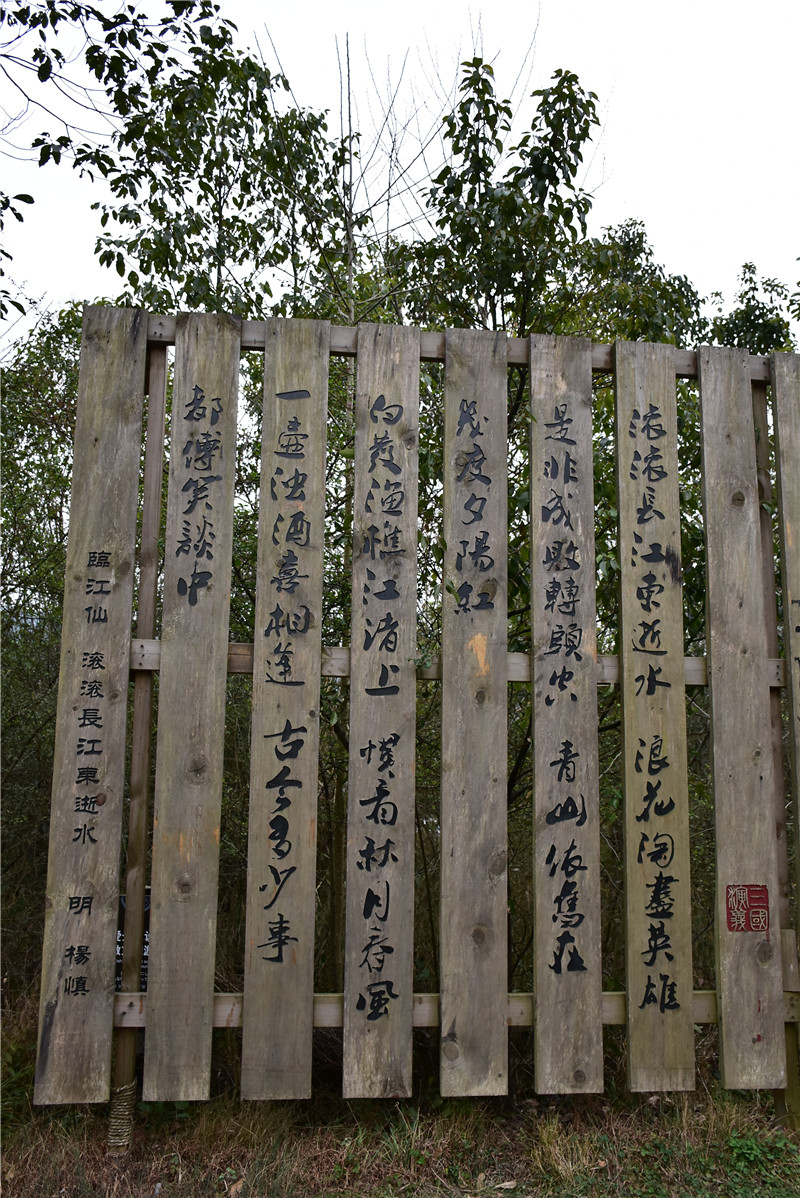 三國演義
滚滚長江東逝水 浪花淘盡英雄
是非成敗轉頭空 青山依舊在
幾度夕陽紅
白发渔樵江渚上 慣看秋月春風
一壺浊酒喜相逢 古今多少事
都傳笑談中
臨江仙 滚滚長江東逝水 明 楊慎